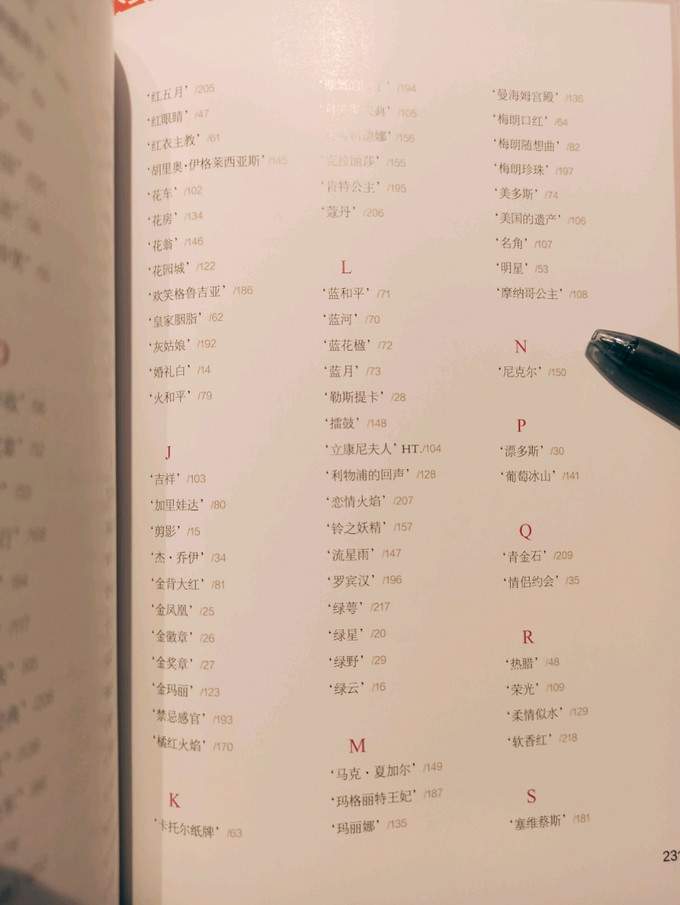 ‘红五月’ /205
‘红眼睛’ /47
‘红衣主教’ /61
‘胡里奥·伊格莱西亚斯’ /145
‘花车’ /102
‘花房’ /134
‘花翁’ /146
‘花园城’ /122
‘欢笑格鲁吉亚’ /186
‘皇家胭脂’ /62
‘灰姑娘’ /192
‘婚礼白’ /14
‘火和平’ /79
J
‘吉祥’ /103
‘加里娃达’ /80
‘剪影’ /15
‘杰·乔伊’ /34
‘金背大红’ /81
‘金凤凰’ /25
‘金徽章’ /26
‘金奖章’ /27
‘金玛丽’ /123
‘禁忌感官’ /193
‘橘红火焰’ /170
K
‘卡托尔纸牌’ /63
/194
/105
/156
‘克拉丽莎’ /155
‘肯特公主’ /195
‘蔻丹’ /206
L
‘蓝和平’ /71
‘蓝河’ /70
‘蓝花楹’ /72
‘蓝月’ /73
‘勒斯提卡’ /28
‘擂鼓’ /148
‘立康尼夫人’ HT./104
‘利物浦的回声’ /128
‘恋情火焰’ /207
‘铃之妖精’ /157
‘流星雨’ /147
‘罗宾汉’ /196
‘绿萼’ /217
‘绿星’ /20
‘绿野’ /29
‘绿云’ /16
M
‘马克·夏加尔’ /149
‘玛格丽特王妃’ /187
‘玛丽娜’ /135
‘曼海姆宫殿’ /136
‘梅朗口红’ /64
‘梅朗随想曲’ /82
‘梅朗珍珠’ /197
‘美多斯’ /74
‘美国的遗产’ /106
‘名角’ /107
‘明星’ /53
‘摩纳哥公主’ /108
N
‘尼克尔’ /150
P
‘漂多斯’ /30
‘葡萄冰山’ /141
Q
‘青金石’ /209
‘情侣约会’ /35
R
‘热腊’ /48
‘荣光’ /109
‘柔情似水’ /129
‘软香红’ /218
S
‘塞维蔡斯’ /181
231